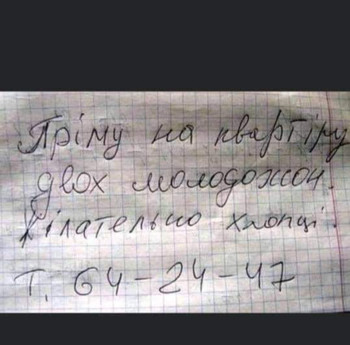 Пріму на квартіру
двох моло́дожон.
Жілательно хлопці.
Т. 64-24-47